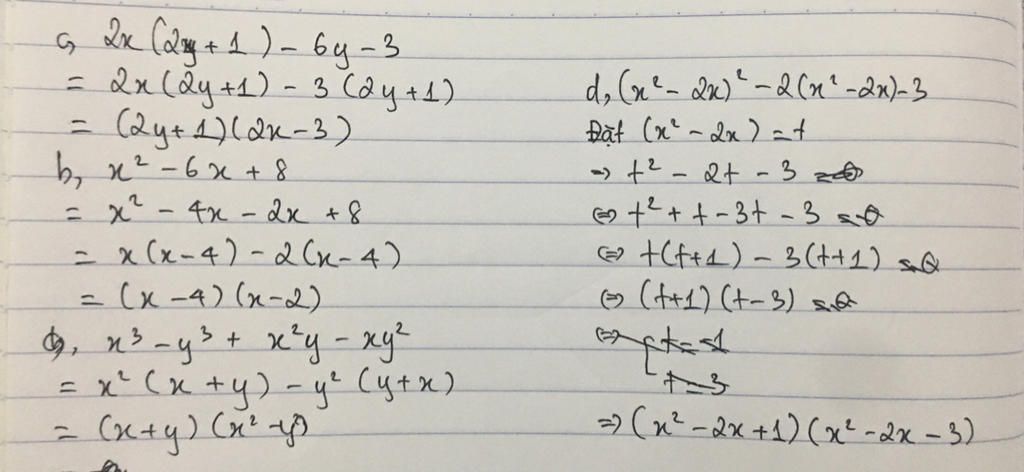 c, 2x(2y + 1) - 6y - 3
= 2x(2y+1) - 3(2y+1)
= (2y+1)(2x-3)
b, x² - 6x + 8
= x² - 4x - 2x + 8
= x(x-4) - 2(x-4)
= (x-4)(x-2)
x³ - y³ + x²y - xy²
= x²(x+y) - y²(y+x)
= (x+y)(x²-y²)
d, (x² - 2x)² - 2(x² - 2x) - 3
Đặt (x² - 2x) = t
→ t² - 2t - 3 = 0
⇔ t² + t - 3t - 3 = 0
⇔ t(t+1) - 3(t+1) = 0
⇔ (t+1)(t-3) = 0
⇔ t = -1
t = 3
⇒ (x² - 2x + 1)(x² - 2x - 3)